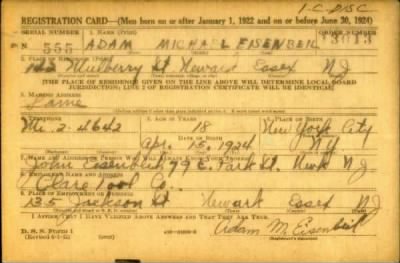 1-C-DISC
REGISTRATION CARD—(Men born on or after January 1, 1922 and on or before June 30, 1924)
SERIAL NUMBER 1. NAME (Print) ORDER NUMBER
N 555 ADAM MICHAEL EISENBEIL 13013
2. PLACE OF RESIDENCE (Print)
142 Mulberry St Newark Essex NJ
[THE PLACE OF RESIDENCE GIVEN ON THE LINE ABOVE WILL DETERMINE LOCAL BOARD
JURISDICTION; LINE 2 OF REGISTRATION CERTIFICATE WILL BE IDENTICAL]
3. MAILING ADDRESS
Same
4. TELEPHONE 5. AGE IN YEARS 6. PLACE OF BIRTH
18 New York City
2-4642 DATE OF BIRTH
Apr. 15, 1924 NY
7. NAME AND ADDRESS OF PERSON WHO WILL ALWAYS KNOW YOUR ADDRESS
John Eisenbeil 79 E. Park St. Newk NJ
8. EMPLOYER'S NAME AND ADDRESS
Tool Co.
9. PLACE OF EMPLOYMENT OR BUSINESS
135 Jackson St Newark Essex NJ
I AFFIRM THAT I HAVE VERIFIED ABOVE ANSWERS AND THAT THEY ARE TRUE.
D. S. S. Form 1
(Revised 6-9-42)
Adam M. Eisenbeil
(Registrant's signature)